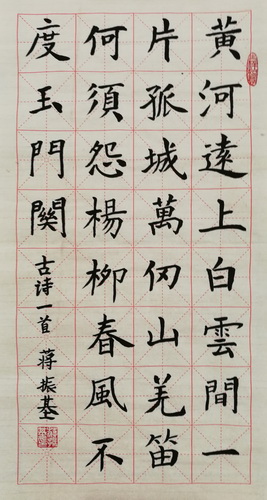 黄河遠上白雲間一
片孤城萬仞山羌笛
何須怨楊柳春風不
度玉門関
古诗一首 蒋振基